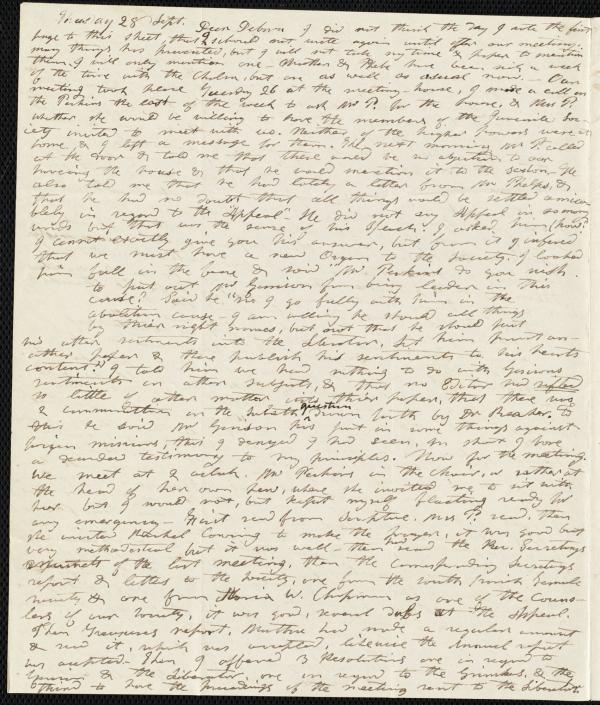 Thursday 28 Sept. Dear Debora I did not think the day I wrote the first
page to this sheet, that I should not write again until after our meeting.
many things has prevented, but I will not take up time & paper to mention
them. I will only mention one - Mother & have been sick a week
of the time with the Cholera, but are as well as usual now. - Our
meeting took place Tuesday 26 at the meeting-house, I made a call on
the Perkins the last of the week to ask Mr P. for the house, & Mrs P.
whether she would be willing to have the members of the Juvenile Soc-
iety invited to meet with us. Neither of the higher powers were at
home, & I left a message for them. The next morning Mr P. called
at the door & told me that there would be no objection to our
having the house & that he would mention it to the session. He
also told me that he had lately a letter from Mr Phelps, &
that he had no doubt that all things would be settled amica-
bly in regard to the "Appeal" He did not say Appeal in so many
words but that was the sense of his speech. I asked him (how?
I cannot exactly give you his answer, but from it I infered
that we must have a new Organ to the Society. I looked
him full in the face & said "Mr Perkins do you wish
to put out Mr Garrison from being leader in this
cause?" Said he "no I go fully with him in the
abolition cause - I am willing he should call things
by their right names, but not that he should put
his other sentiments into the Liberator, let him print an-
other paper & there publish his sentiments to his hearts
content." I told him we had nothing to do with Garrisons
sentiments on other subjects, & that no Editor had
so little of other matter into their paper, than there was
& communication on the Sabbath question, drawn forth by Dr Beecher. to
this he said Mr Garrison has put in some things against
foreign missions, this I denyed I had seen, in short I bore
a decided testimony to my principles. Now for the meeting.
We meet at 2 oclock. Mrs Perkins in the chair, or rather at
the head of her own pew, where she invited me to sit with
her but I would not, but kept myself floating ready for
any emergency - First read from Scripture. Mrs P. read, then
she invited Rachel to make the prayer, it was good but
very methodistical but it was well - then read the Rec. Secretarys
of the last meeting, then the Corresponding Secretarys
report & letters to the Society, one from the South Parish Female
Society & one from Maria W. Chapman as one of the Couns-
lers of our Society, it was good, several at the Appeal.
Then Treasurers report, Mother had made a regular amount
& read it, which was accepted, likewise the Annual report
was accepted. Then I offered 3 Resolutions one in regard to
& the Liberator, one in regard to the Grimkes, & the
third to have the proceedings of the meeting sent to the Liberator